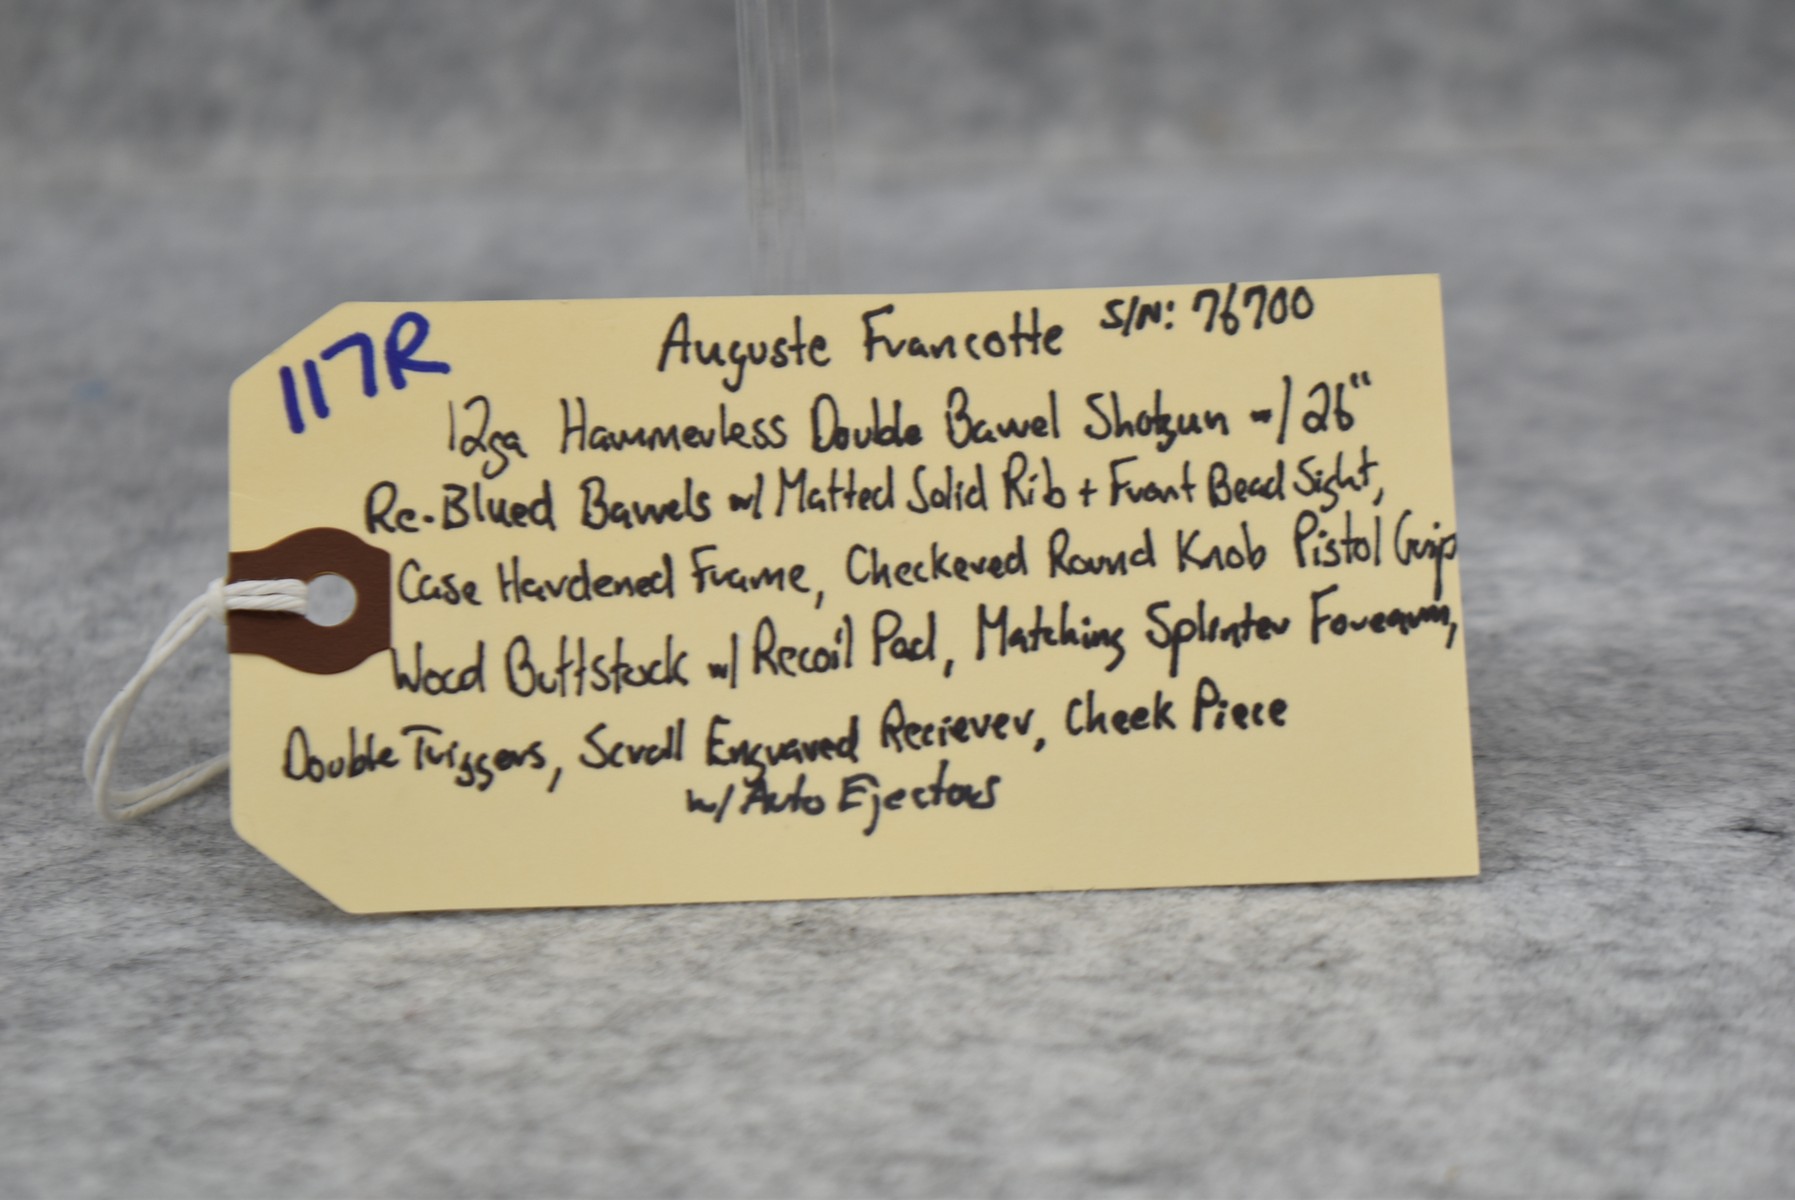 117R
Auguste Francotte S/N: 76700
12ga Hammerless Double Barrel Shotgun w/ 26"
Re-Blued Barrels w/ Matted Solid Rib + Front Bead Sight,
Case Hardened Frame, Checkered Round Knob Pistol Grip
Wood Buttstock w/ Recoil Pad, Matching Splinter Forearm,
Double Triggers, Scroll Engraved Reciever, Cheek Piece
w/ Auto Ejectors